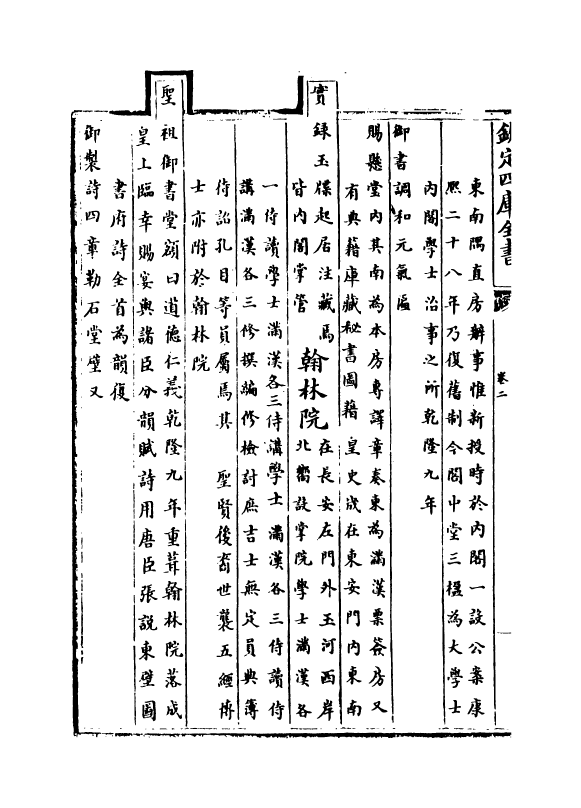 欽定四庫全書
卷二
東南隅直房辦事惟新授時於內閣一設公案康
熙二十八年乃復舊制今閣中堂三楹為大學士
內閣學士治事之所乾隆九年
御書調和元氣匾
賜懸堂內其南為本房專譯章奏東為滿漢票簽房又
有典籍庫藏秘書圖籍 皇史宬在東安門內東南
實錄玉牒起居注藏焉 翰林院在長安左門外玉河西岸
皆內閣掌管 北嚮設掌院學士滿漢各
一侍讀學士滿漢各三侍講學士滿漢各三侍讀侍
講滿漢各三修撰編修檢討庶吉士無定員典簿
侍詔孔目等員屬焉其 聖賢後裔世襲五經博
士亦附於翰林院
聖祖御書堂額曰道德仁義乾隆九年重葺翰林院落成
皇上臨幸賜宴與諸臣分韻賦詩用唐臣張說東壁圖
書府詩全首為韻復
御製詩四章勒石堂壁又